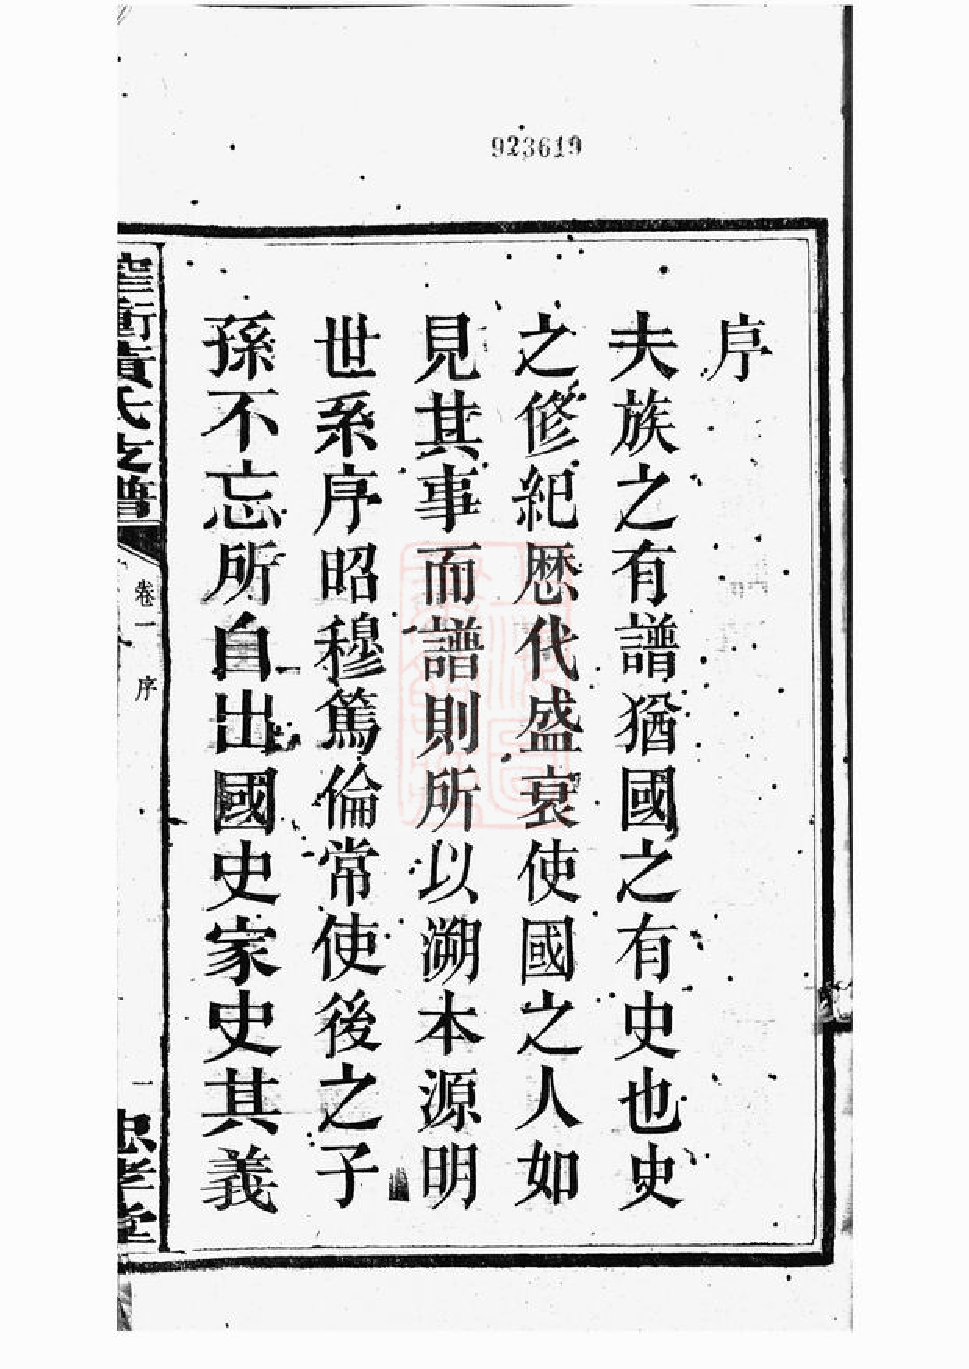 923619
序
夫族之有譜猶國之有史也史
之修紀歴代盛衰使國之人如
見其事而譜則所以溯本源明
世系序昭穆篤倫常使後之子
孫不忘所自出國史家史其義
黃氏支譜
卷一
序
一
忠孝堂